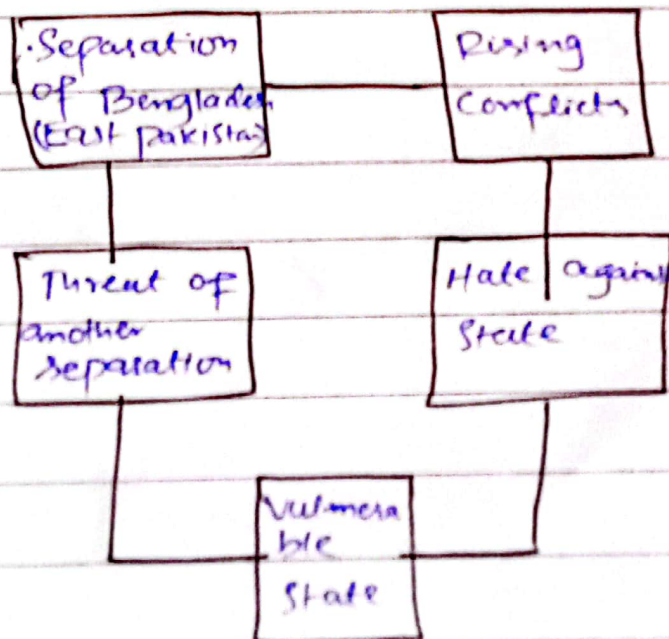 .Separation
of Bengladesh
(East Pakistan)
Rising
Conflicts
Threat of
another
separation
Hate against
State
Vulnera
ble
State